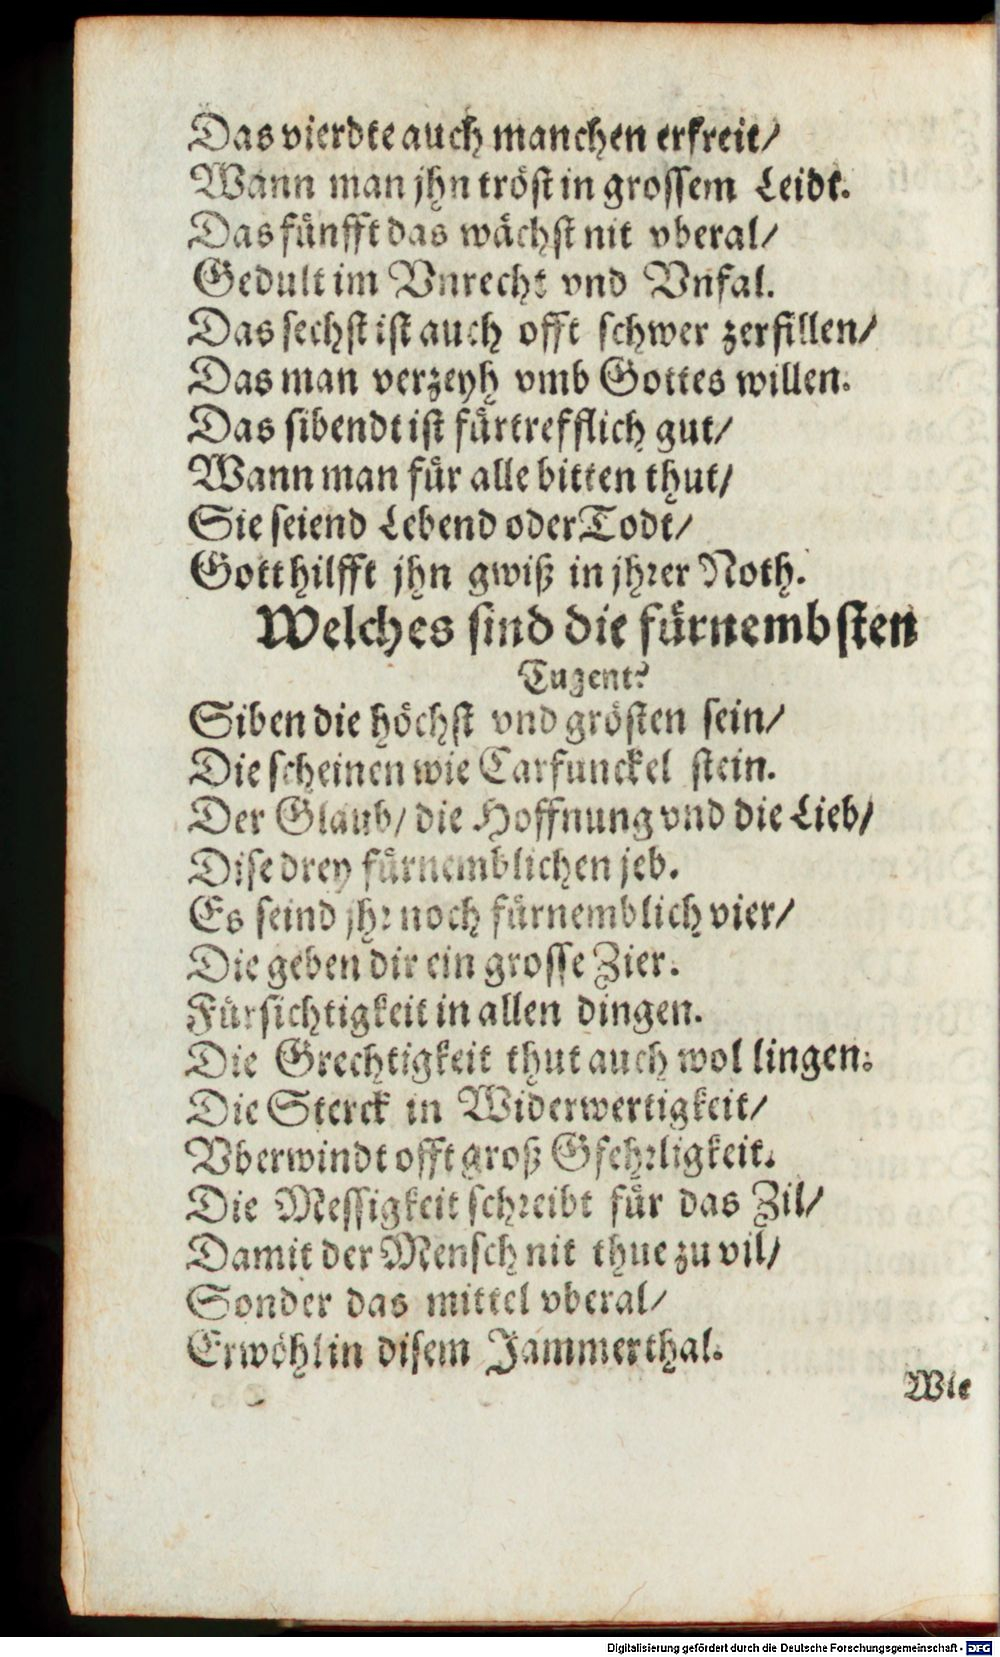 Das vierdte auch manchen erfreit/
Wann man jhn tröst in grossem Leidt.
Das fünfft das wächst nit vberal/
Gedult im Vnrecht vnd Vnfal.
Das sechst ist auch offt schwer zerfillen/
Das man verzeyh vmb Gottes willen.
Das sibendt ist fürtrefflich gut/
Wann man für alle bitten thut/
Sie seiend Lebend oder Todt/
Gott hilfft jhn gwiß in jhrer Noth.
Welches sind die fürnembsten
Tugent?
Siben die höchst vnd grösten sein/
Die scheinen wie Carfunckel stein.
Der Glaub/ die Hoffnung vnd die Lieb/
Dise drey fürnemblichen jeb.
Es seind jhr noch fürnemblich vier/
Die geben dir ein grosse Zier.
Fürsichtigkeit in allen dingen.
Die Grechtigkeit thut auch wol lingen.
Die Sterck in Widerwertigkeit/
Vberwindt offt groß Gfehrligkeit.
Die Messigkeit schreibt für das Zil/
Damit der Mensch nit thue zu vil/
Sonder das mittel vberal/
Erwöhl in disem Jammerthal.
Wie
Digitalisierung gefördert durch die Deutsche Forschungsgemeinschaft - DFG